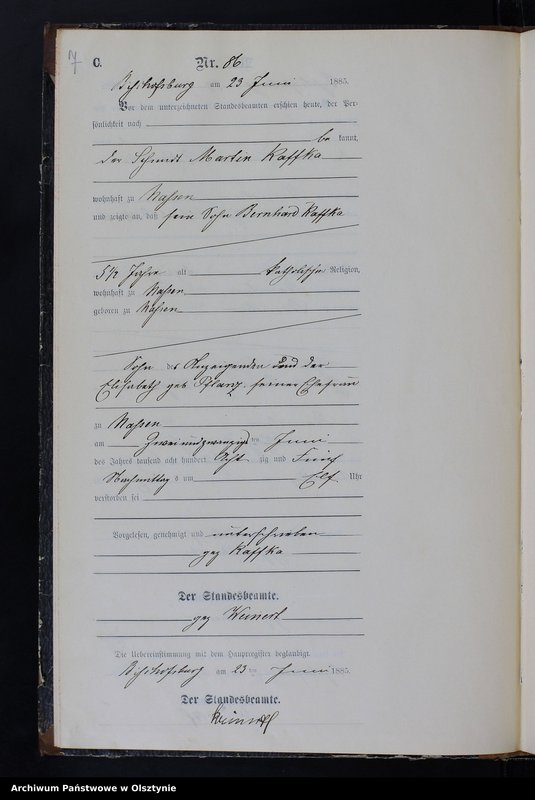 C. Nr. 86
Bischofsburg am 23 Juni 1885.
Vor dem unterzeichneten Standesbeamten erschien heute, der Per-
sönlichkeit nach
be kannt,
der Schmidt Martin Kaffka
wohnhaft zu Nassen
und zeigte an, daß sein Sohn Bernhard Kaffka
5 1/2 Jahre alt katholischer Religion,
wohnhaft zu Nassen
geboren zu Nassen
Sohn des Anzeigenden und der
Elisabeth geb. seiner Ehefrau
zu Nassen
am Zweiundzwanzigsten Juni
des Jahres tausend acht hundert Acht zig und Fünf
Nachmittag s um Elf Uhr
verstorben sei
Vorgelesen, genehmigt und unterschrieben
gez Kaffka
Der Standesbeamte.
gez Weinert
Die Uebereinstimmung mit dem Hauptregister beglaubigt.
Bischofsburg am 23 ten Juni 1885.
Der Standesbeamte.
Weinert
Archiwum Państwowe w Olsztynie